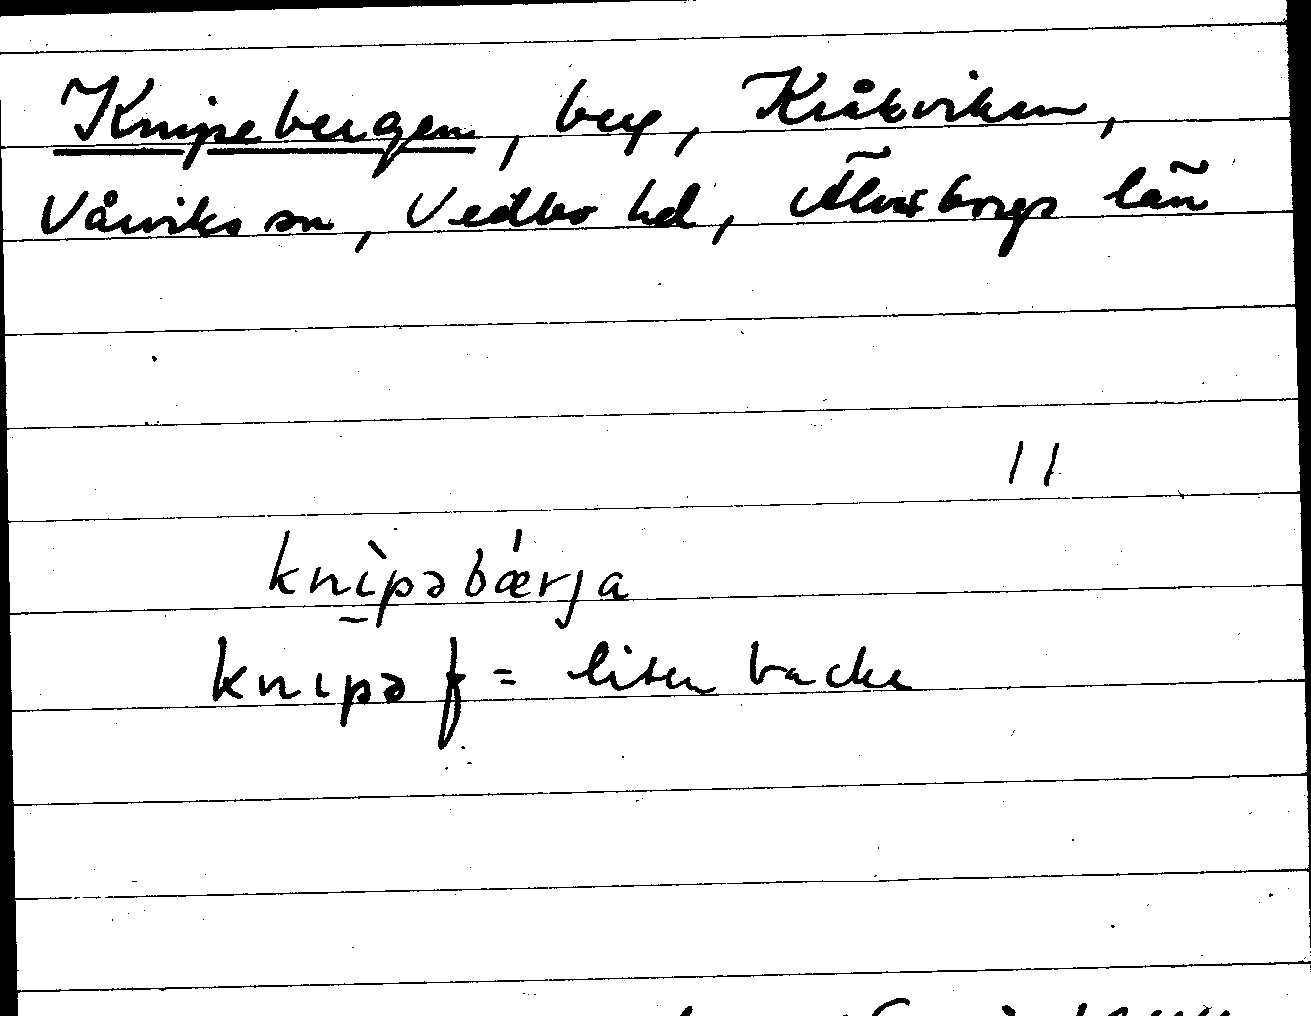 Knipebergen, berg, Kråkviken,
Vårviks sn, Vedbo hd, Älvsborgs län
11
knìpəbǽrja
knıpə f = liten backe